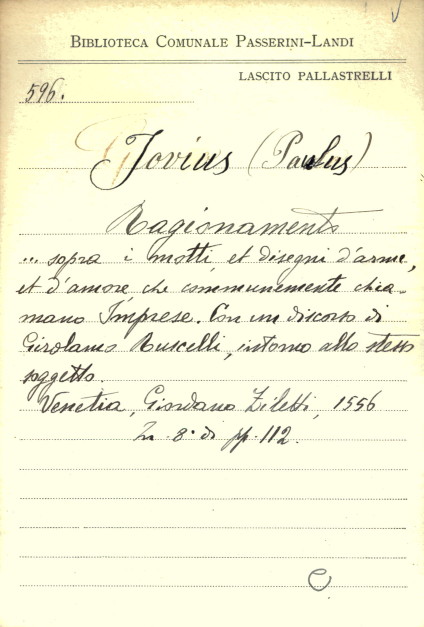 BIBLIOTECA COMUNALE PASSERINI-LANDI
LASCITO PALLASTRELLI
596.
Jovius (Paulus)
Ragionamento
... sopra i motti, et disegni d'arme,
et d'amore che communemente chia-
mano Imprese. Con un discorso di
Girolamo Ruscelli, intorno allo stesso
soggetto.
Venetia, Giordano Ziletti, 1556
In 8° di pp. 112.